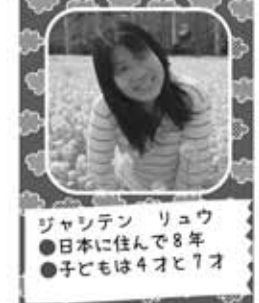 ジャシテン リュウ
●日本に住んで8年
●子どもは4才と7才